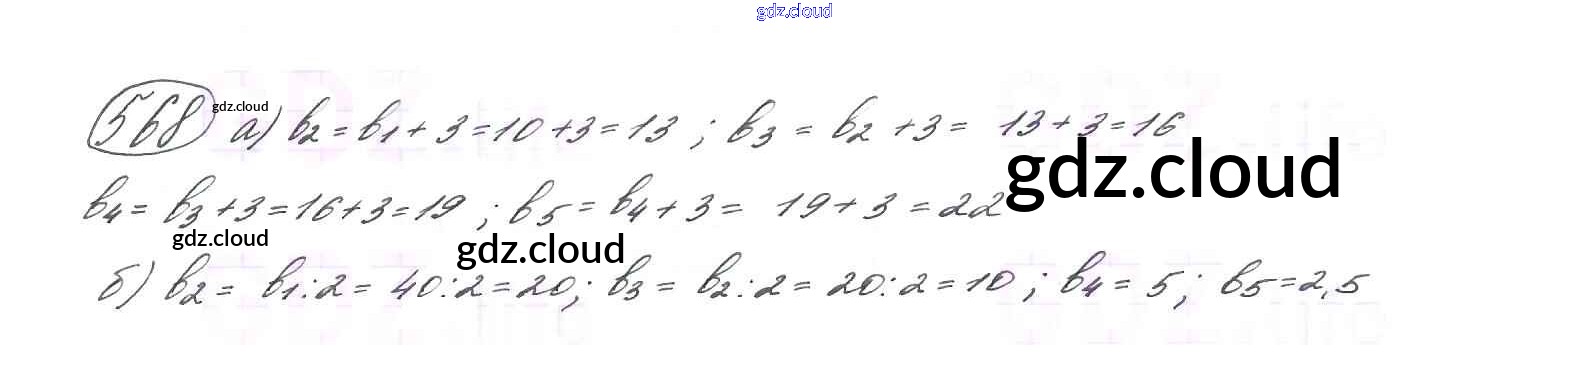 gdz.cloud
568 gdz.cloud а) b₂ = b₁ + 3 = 10 + 3 = 13 ; b₃ = b₂ + 3 = 13 + 3 = 16
gdz.cloud
b₄ = b₃ + 3 = 16 + 3 = 19 ; b₅ = b₄ + 3 = 19 + 3 = 22
gdz.cloud gdz.cloud
б) b₂ = b₁ : 2 = 40 : 2 = 20; b₃ = b₂ : 2 = 20 : 2 = 10 ; b₄ = 5 ; b₅ = 2,5